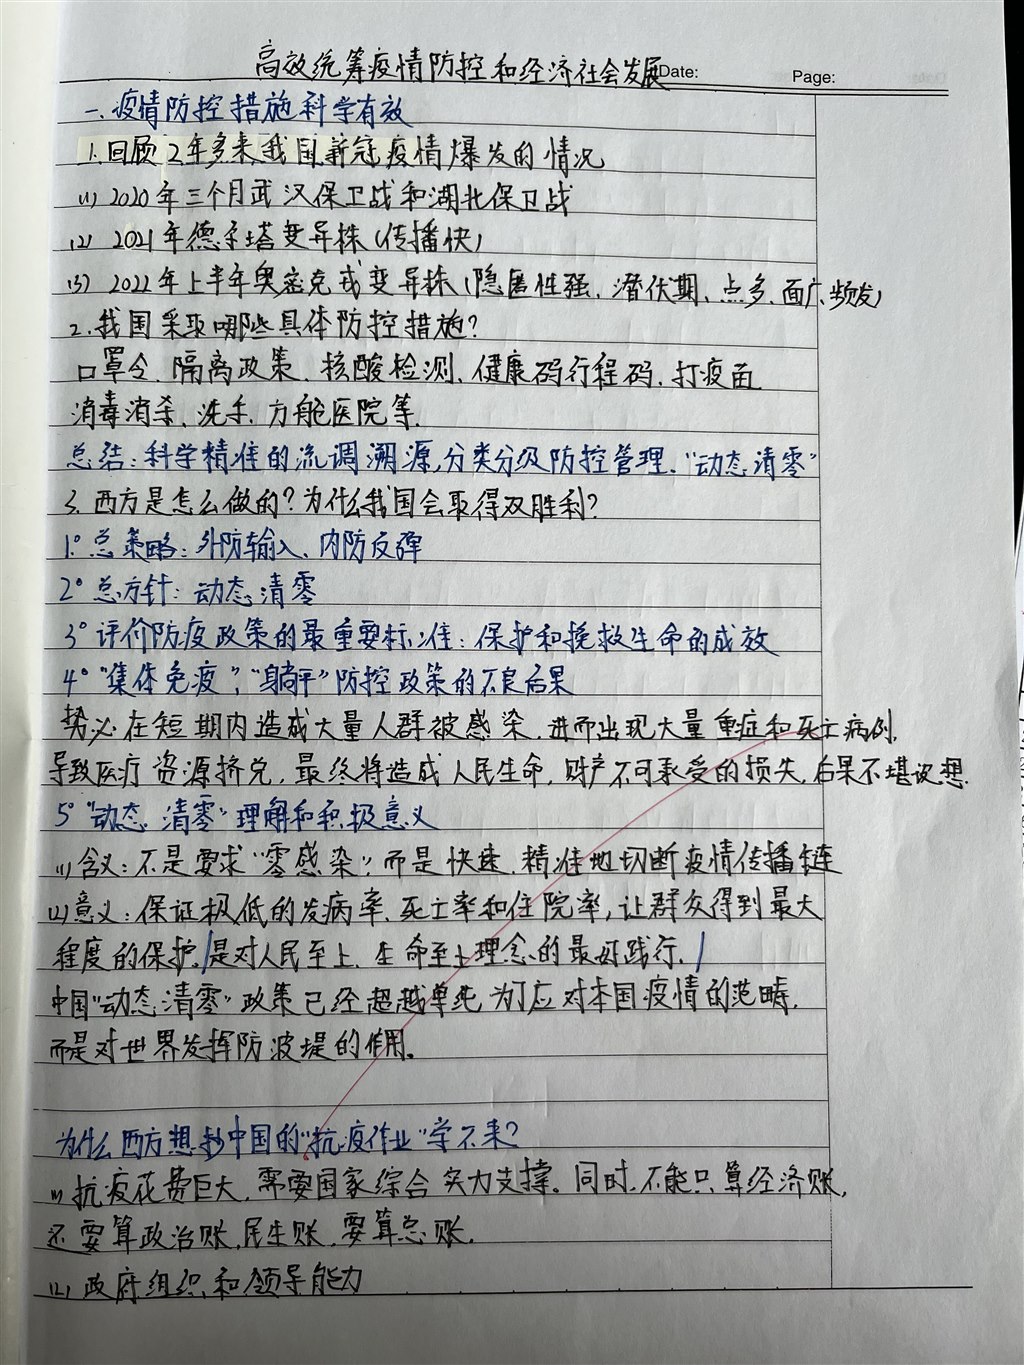 高效统筹疫情防控和经济社会发展 Date: Page:
一、疫情防控措施科学有效
1.回顾2年多来我国新冠疫情爆发的情况
(1) 2020年三个月武汉保卫战和湖北保卫战
(2) 2021年德尔塔变异株(传播快)
(3) 2022年上半年奥密克戎变异株(隐匿性强、潜伏期、点多、面广、频发)
2.我国采取哪些具体防控措施?
口罩令、隔离政策、核酸检测、健康码行程码、打疫苗
消毒消杀、洗手、方舱医院等.
总结:科学精准的流调溯源,分类分级防控管理、"动态清零"
3.西方是怎么做的?为什么我国会取得双胜利?
1°总策略:外防输入、内防反弹
2°总方针:动态清零
3°评价防疫政策的最重要标准:保护和挽救生命的成效
4°"集体免疫","躺平"防控政策的不良后果
势必在短期内造成大量人群被感染,进而出现大量重症和死亡病例,
导致医疗资源挤兑,最终将造成人民生命,财产不可承受的损失,后果不堪设想.
5°"动态清零"理解和积极意义
(1)含义:不是要求"零感染",而是快速、精准地切断疫情传播链
(2)意义:保证极低的发病率、死亡率和住院率,让群众得到最大
程度的保护.是对人民至上、生命至上理念的最好践行.
中国"动态清零"政策已经超越单纯为了应对本国疫情的范畴,
而是对世界发挥防波堤的作用。
为什么西方想抄中国的"抗疫作业"学不来?
(1)抗疫花费巨大,需要国家综合实力支撑。同时,不能只算经济账,
还要算政治账,民生账,要算总账.
(2)政府组织和领导能力